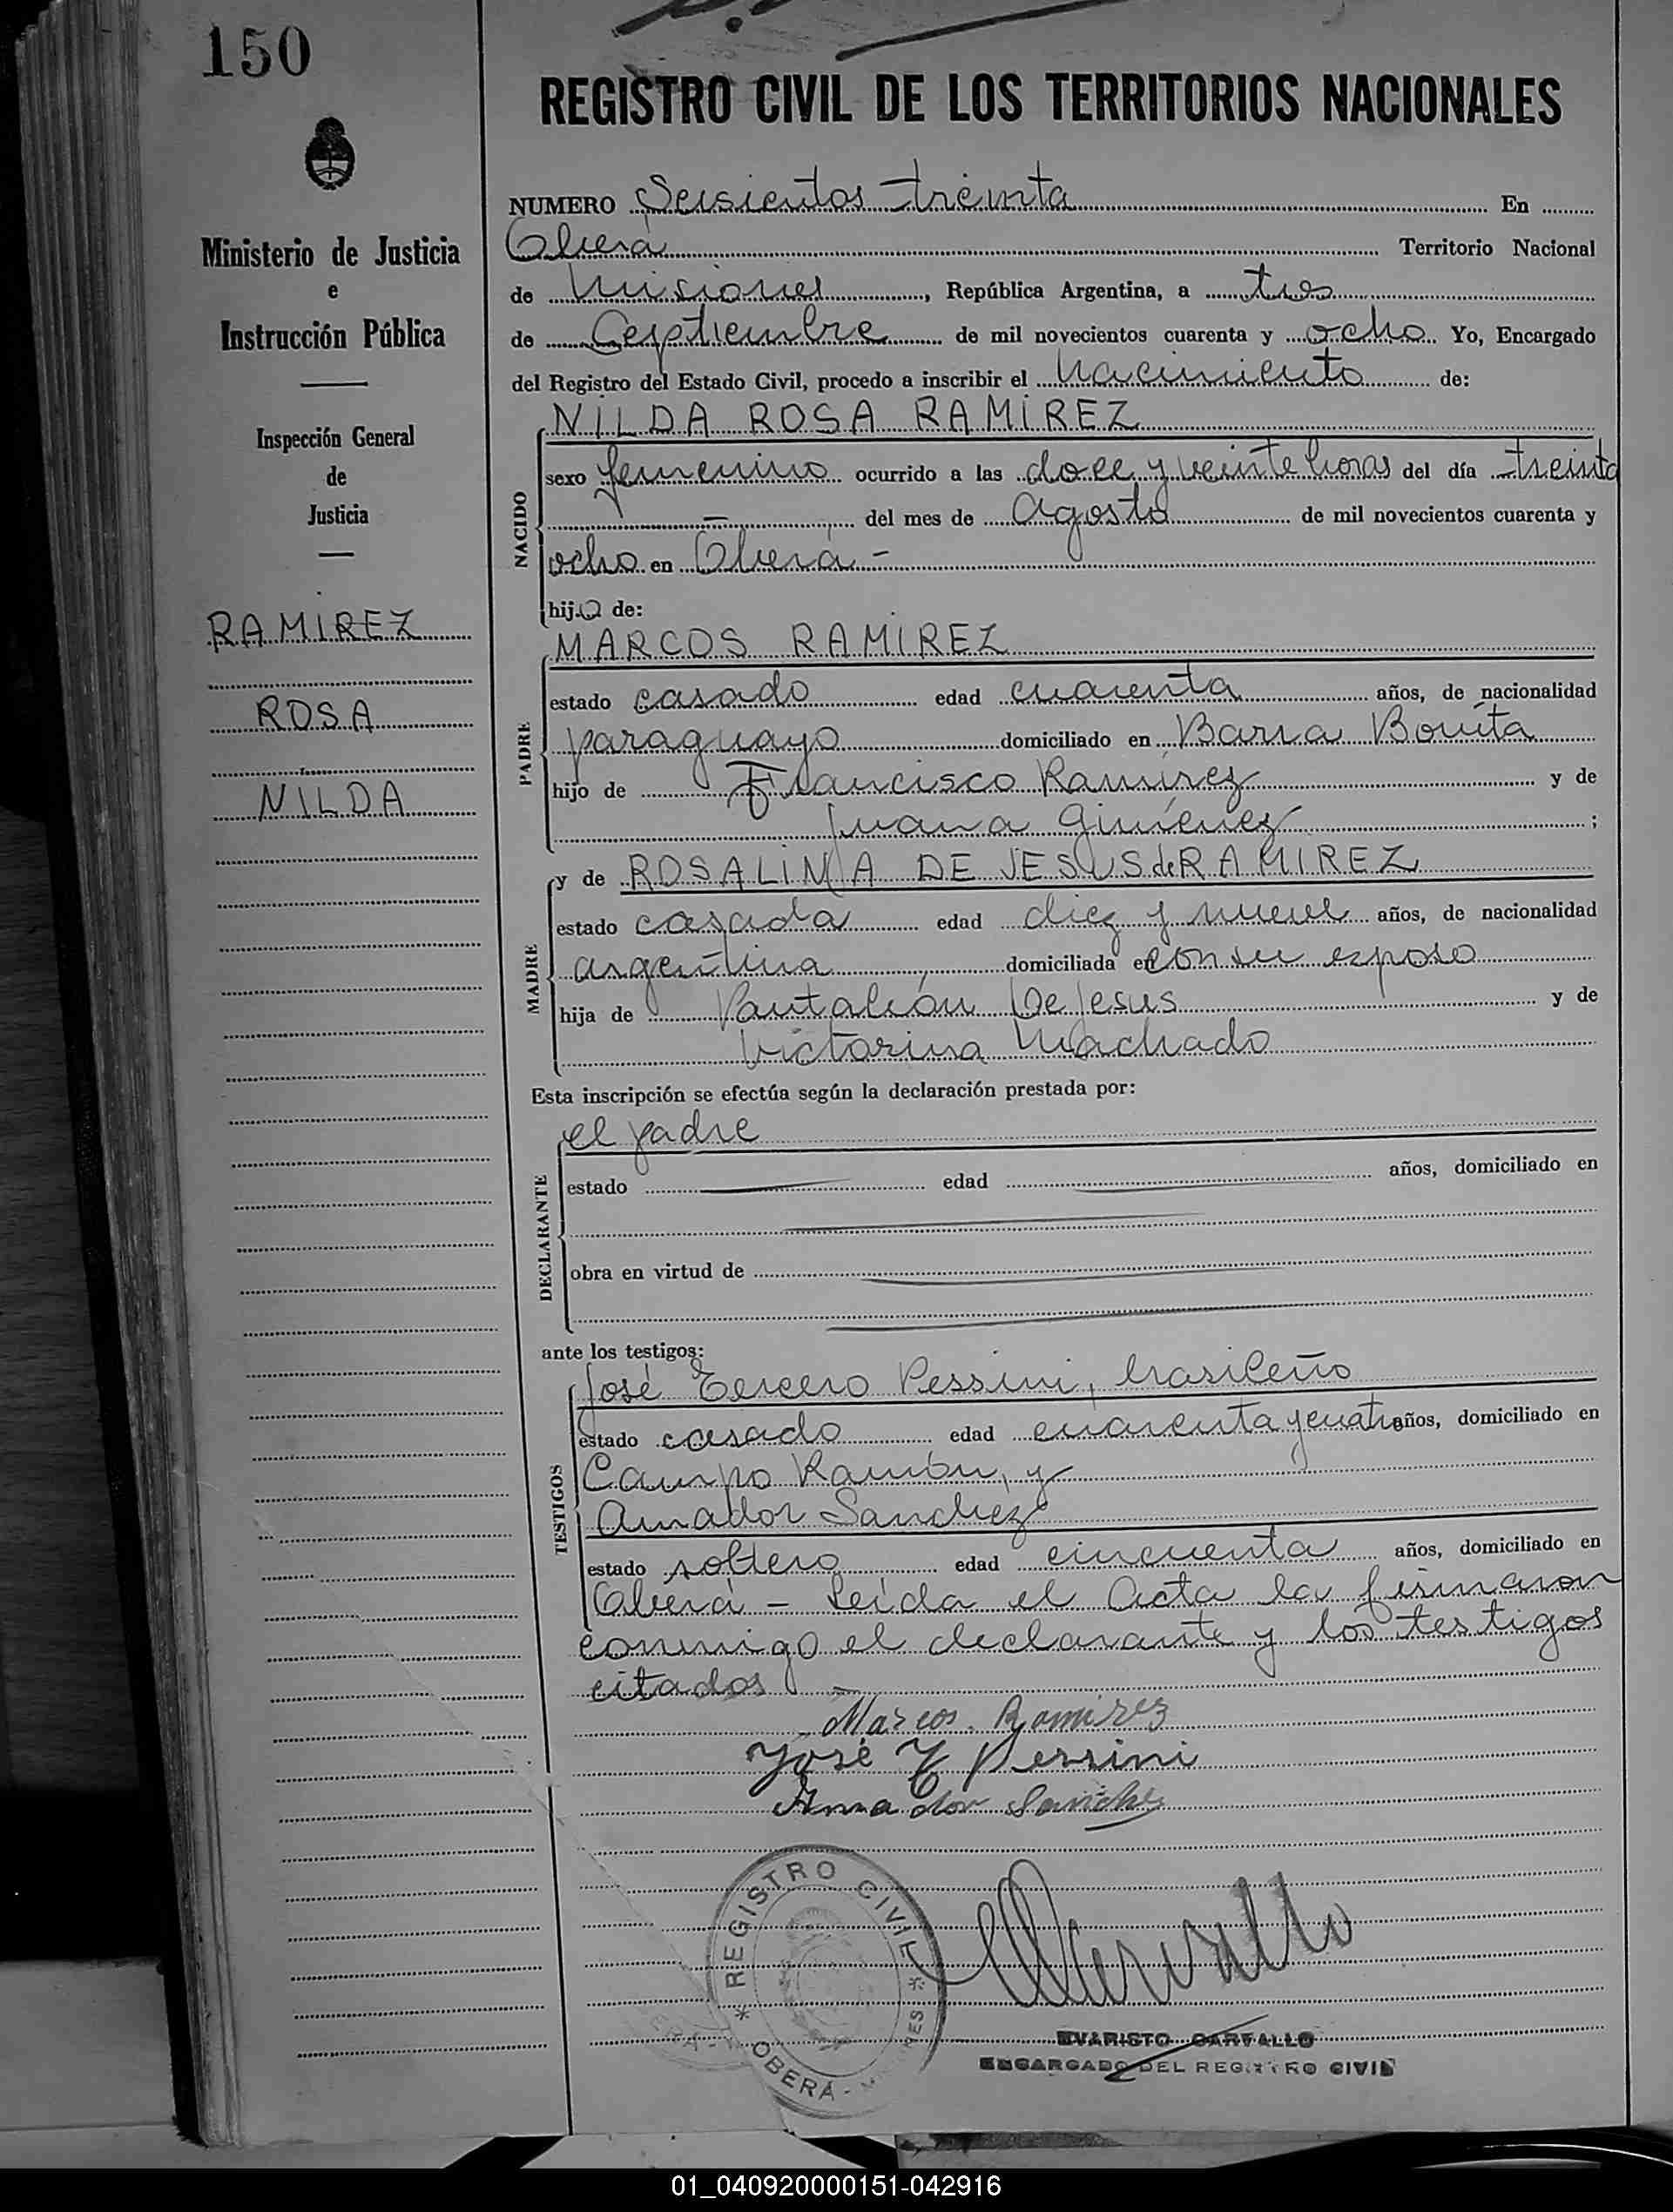 150
Ministerio de Justicia
e
Instrucción Pública
Inspección General
de
Justicia
RAMIREZ
ROSA
NILDA
REGISTRO CIVIL DE LOS TERRITORIOS NACIONALES
NUMERO Seisientos treinta En
Oberá Territorio Nacional
de Misiones, República Argentina, a tres
de Ceptiembre de mil novecientos cuarenta y ocho Yo, Encargado
del Registro del Estado Civil, procedo a inscribir el nacimiento de:
NACIDO
NILDA ROSA RAMIREZ
sexo femenino ocurrido a las doce y veinte horas del día treinta
— del mes de Agosto de mil novecientos cuarenta y
ocho en Oberá -
hija de:
PADRE
MARCOS RAMIREZ
estado casado edad cuarenta años, de nacionalidad
paraguayo domiciliado en Barra Bonita
hijo de Francisco Ramirez y de
Juana Giménez ;
MADRE
y de ROSALINA DE JESUS de RAMIREZ
estado casada edad diez y nueve años, de nacionalidad
argentina domiciliada en con su esposo
hija de Pantaleón De Jesus y de
Victorina Machado
Esta inscripción se efectúa según la declaración prestada por:
DECLARANTE
el padre
estado edad años, domiciliado en
obra en virtud de
ante los testigos:
TESTIGOS
José Tercero Pessini, brasileño
estado casado edad cuarenta y cuatro años, domiciliado en
Campo Ramón, y
Amador Sanchez
estado soltero edad cincuenta años, domiciliado en
Oberá - Leída el Acta la firmaron
conmigo el declarante y los testigos
citados —
Marcos Ramirez
José T Pessini
Amador Sanchez
REGISTRO CIVIL
OBERÁ - MISIONES
Carvallo
EVARISTO CARVALLO
ENCARGADO DEL REGISTRO CIVIL
01_040920000151-042916